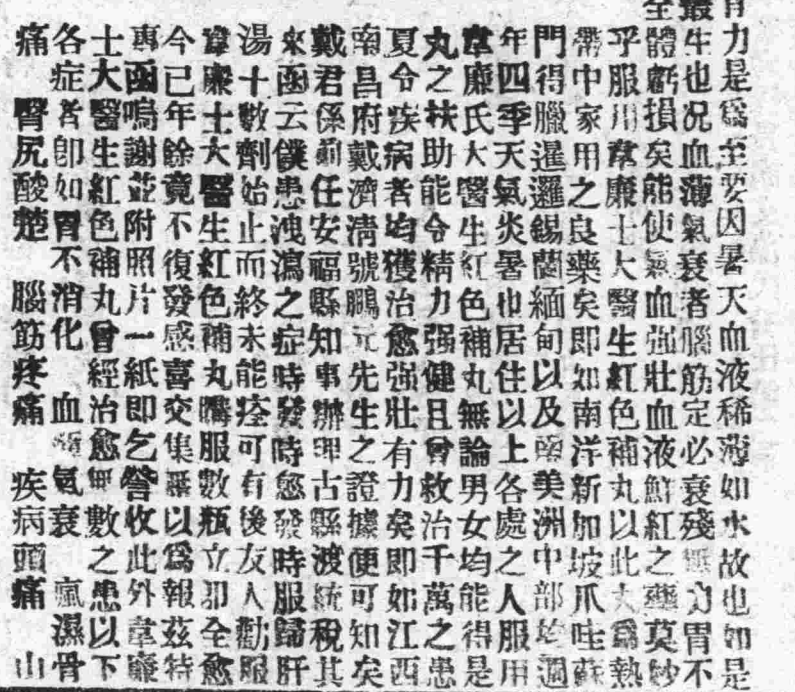 力是爲至要因暑天血液稀薄如水故也如是
叢生也况血薄氣衰者腦筋定必衰殘無力胃不
全體虧損矣能使氣血强壯血液鮮紅之藥莫妙
乎服用韋廉士大醫生紅色補丸以此大爲熱
帶中家用之良藥矣即如南洋新加坡爪哇蘇
門得臘暹邏錫蘭緬甸以及南美洲中部均週
年四季天氣炎暑也居住以上各處之人服用
韋廉氏大醫生紅色補丸無論男女均能得是
丸之扶助能令精力强健且曾救治千萬之患
夏令疾病者均獲治愈强壯有力矣即如江西
南昌府戴濟淸號鵬元先生之證據便可知矣
戴君係前任安福縣知事辦理古縣渡統稅其
來函云僕患洩瀉之症時發時愈發時服歸肝
湯十數劑始止而終未能痊可有後友人勸服
韋廉士大醫生紅色補丸購服數瓶立卽全愈
今已年餘竟不復發感喜交集無以爲報茲特
專函鳴謝並附照片一紙即乞詧收此外韋廉
士大醫生紅色補丸曾經治愈無數之患以下
各症者卽如胃不消化 血薄氣衰 瘋濕骨
痛 臀尻酸楚 腦筋疼痛 疾病頭痛 山